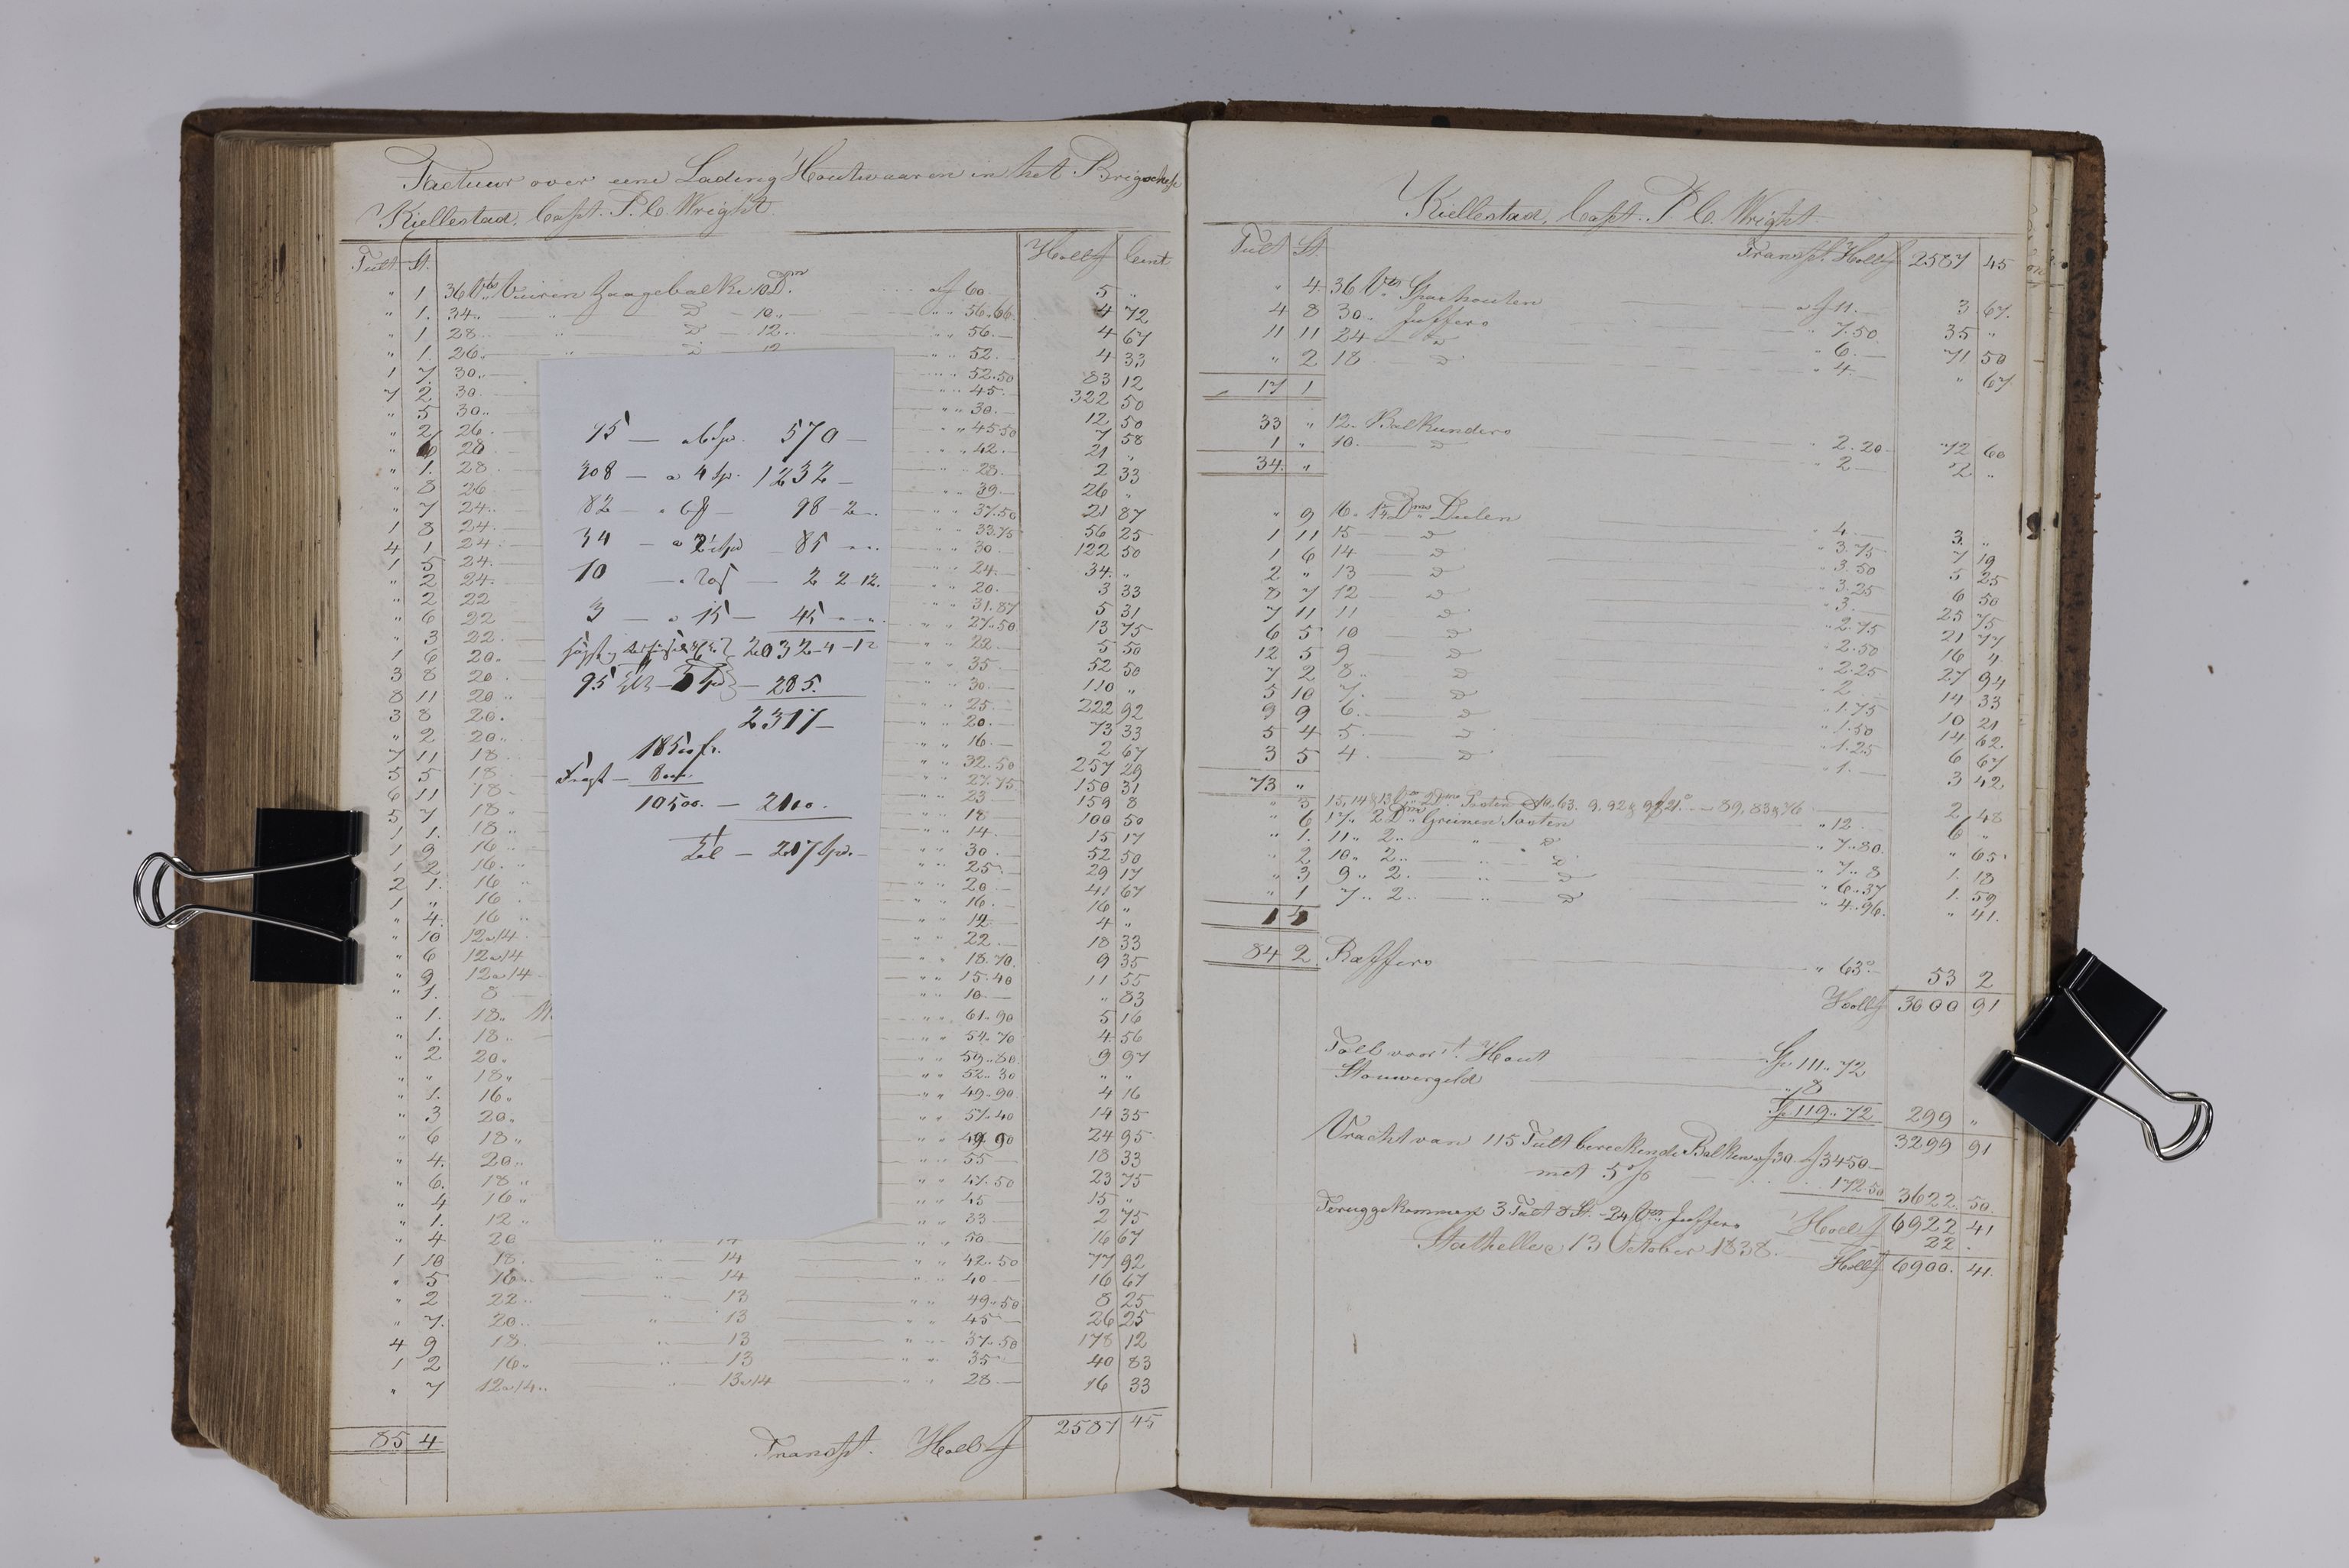 Factuur over eene Lading Houtwaaren in het Brigschip
Kiellestad, Capt. P. C. Wright.
Tult St. Hollf Cent
" 1 36 Vte Vuiren Zaagebalke 10 Dm af 60. 5 "
" 1. 34 " " D - 10 " " 56.66 4 72
" 1 28 " " D - 12 " " 56. 4 67
" 1. 26 " " D 12 " " 52. 4 33
1 7. 30 " " 52.50 83 12
7 2 30 " " 45. 322 50
" 5 30 " " 30. 12 50
" 2 26 " " 45.50 7 58
" 6 28 " " 42. 21 "
" 1. 28 " " 28. 2 33
" 8 26 " " 39 26 "
" 7 24 " " 37.50 21 87
1 8 24 " " 33.75 56 25
4 1 24 " " 30 122 50
1 5 24 " " 24. 34. "
" 2 24. " " 20. 3 33
" 2 22 " " 31.87 5 31
" 6 22 " " 27.50 13 75
" 3 22. " " 22. 5 50
1 6 20. " " 35 52 50
3 8 20 " " 30. 110 "
8 11 20 " " 25. 222 92
3 8 20. " " 20. 73 33
" 2 20 " " 16 2 67
7 11 18 " " 32.50 257 29
5 5 18 " " 27.75 150 31
6 11 18 " " 23 159 8
5 7 18 " " 18 100 50
1 1. 18 " " 14. 15 17
1 9 16 " " 30. 52 50
1 2 16. " " 25. 29 17
2 1. 16 " " 20 41 67
1 " 16. " " 16. 16 "
" 4. 16 " " 12. 4 "
" 10 12a14 " " 22. 18 33
" 6 12a14 " " 18.70. 9 35
" 9 12a14 " " 15.40 11 55
" 1. 8 " " 10 " 83
" 1. 18 " " 61.90 5 16
" 1. 18 " " 54.70 4 56
" 2 20 " " 59.80 9 97
" " 18 " " 52.30 " "
" 1. 16 " " 49.90 4 16
" 3 20 " " 57.40 14 35
" 6 18 " " 49 90 24 95
" 4. 20 " " 55 18 33
" 6. 18 " " 47.50 23 75
" 4 16 " " 45 15 "
" 1. 12 " " 33 2 75
" 4. 20 " 14 " " 50 16 67
1 10 18. " 14 " " 42.50 77 92
" 5 16 " 14 " " 40 16 67
" 2 22 " 13 " " 49.50 8 25
" 7. 20 " 13 " " 45 26 25
4 9 18. " 13 " " 37.50 178 12
1 2 16 " 13 " " 35 40 83
" 7 12a14 " 13a14 " " 28 16 33
85 4 Transpt. Hollf 2587 45
95 — a 6 Sp. 570 —
308 — a 4 Sp. 1232 —
82 — 98 - 2
34 — 85
10 — 2 2 12.
3 — a 15 — 45
2032-4-12
95 — 285.
2317 —
18500
Fragt — 8000
10500. — 2100.
— 217 Sp. —
Kiellestad, Capt. P. C. Wright
Tult St. Transpt. Hollf 2587 45
" 4 36 Vte Sparhouten af 11. 3 67.
4 8 30 Juffers " 7.50 35 "
11 11 24 D " 6. 71 50
" 2 18 D " 4. " 67.
17 1
33 " 12. Balkunders " 2.20 72 60
1 " 10. D " 2 2 "
34. "
" 9 16. 1¼ Dms Deelen " 4. 3. "
1 11 15 D " 3.75 7 19
1 6 14 D " 3.50 5 25
2 " 13 D " 3.25 6 50
8 7 12 D " 3. 25 75
7 11 11 D " 2.75 21 77
6 5 10 D " 2.50 16 4.
12 5 9 D " 2.25 27 94
7 2 8 D " 2 14 33
5 10 7. D " 1.75 10 21
9 9 6. D " 1.50 14 62.
5 4 5. D " 1.25 6 67
3 5 4 D " 1. 3 42
73 "
" 3 15, 14 & 13 2 Dms 2 48
" 6 17 " 2 D Greinen Posten " 12 6 "
" 1. 11 " 2 " " D " 7.80. " 65.
" 2 10 " 2 " " D " 7.8 1. 18
" 3 9 " 2 " " D " 6.37 1. 59
" 1 7 " 2 " " D " 4.96. " 41.
84 2 Raffers " 63 53 2
Hollf 3000 91
Toll voor 't Hout Sp 111. 72
Stouwergeld " 8
Sp 119. 72 299 "
3299 91
Vracht van 115 Tult bereckende Balken a f 30. f 3450.
met 5 % 172.50 3622. 50.
Hollf 6922 41
Teruggekommen 3 Tult 8 St. 24 Vte Juffers 22 .
Stathelle 13 October 1838. Hollf 6900. 41.